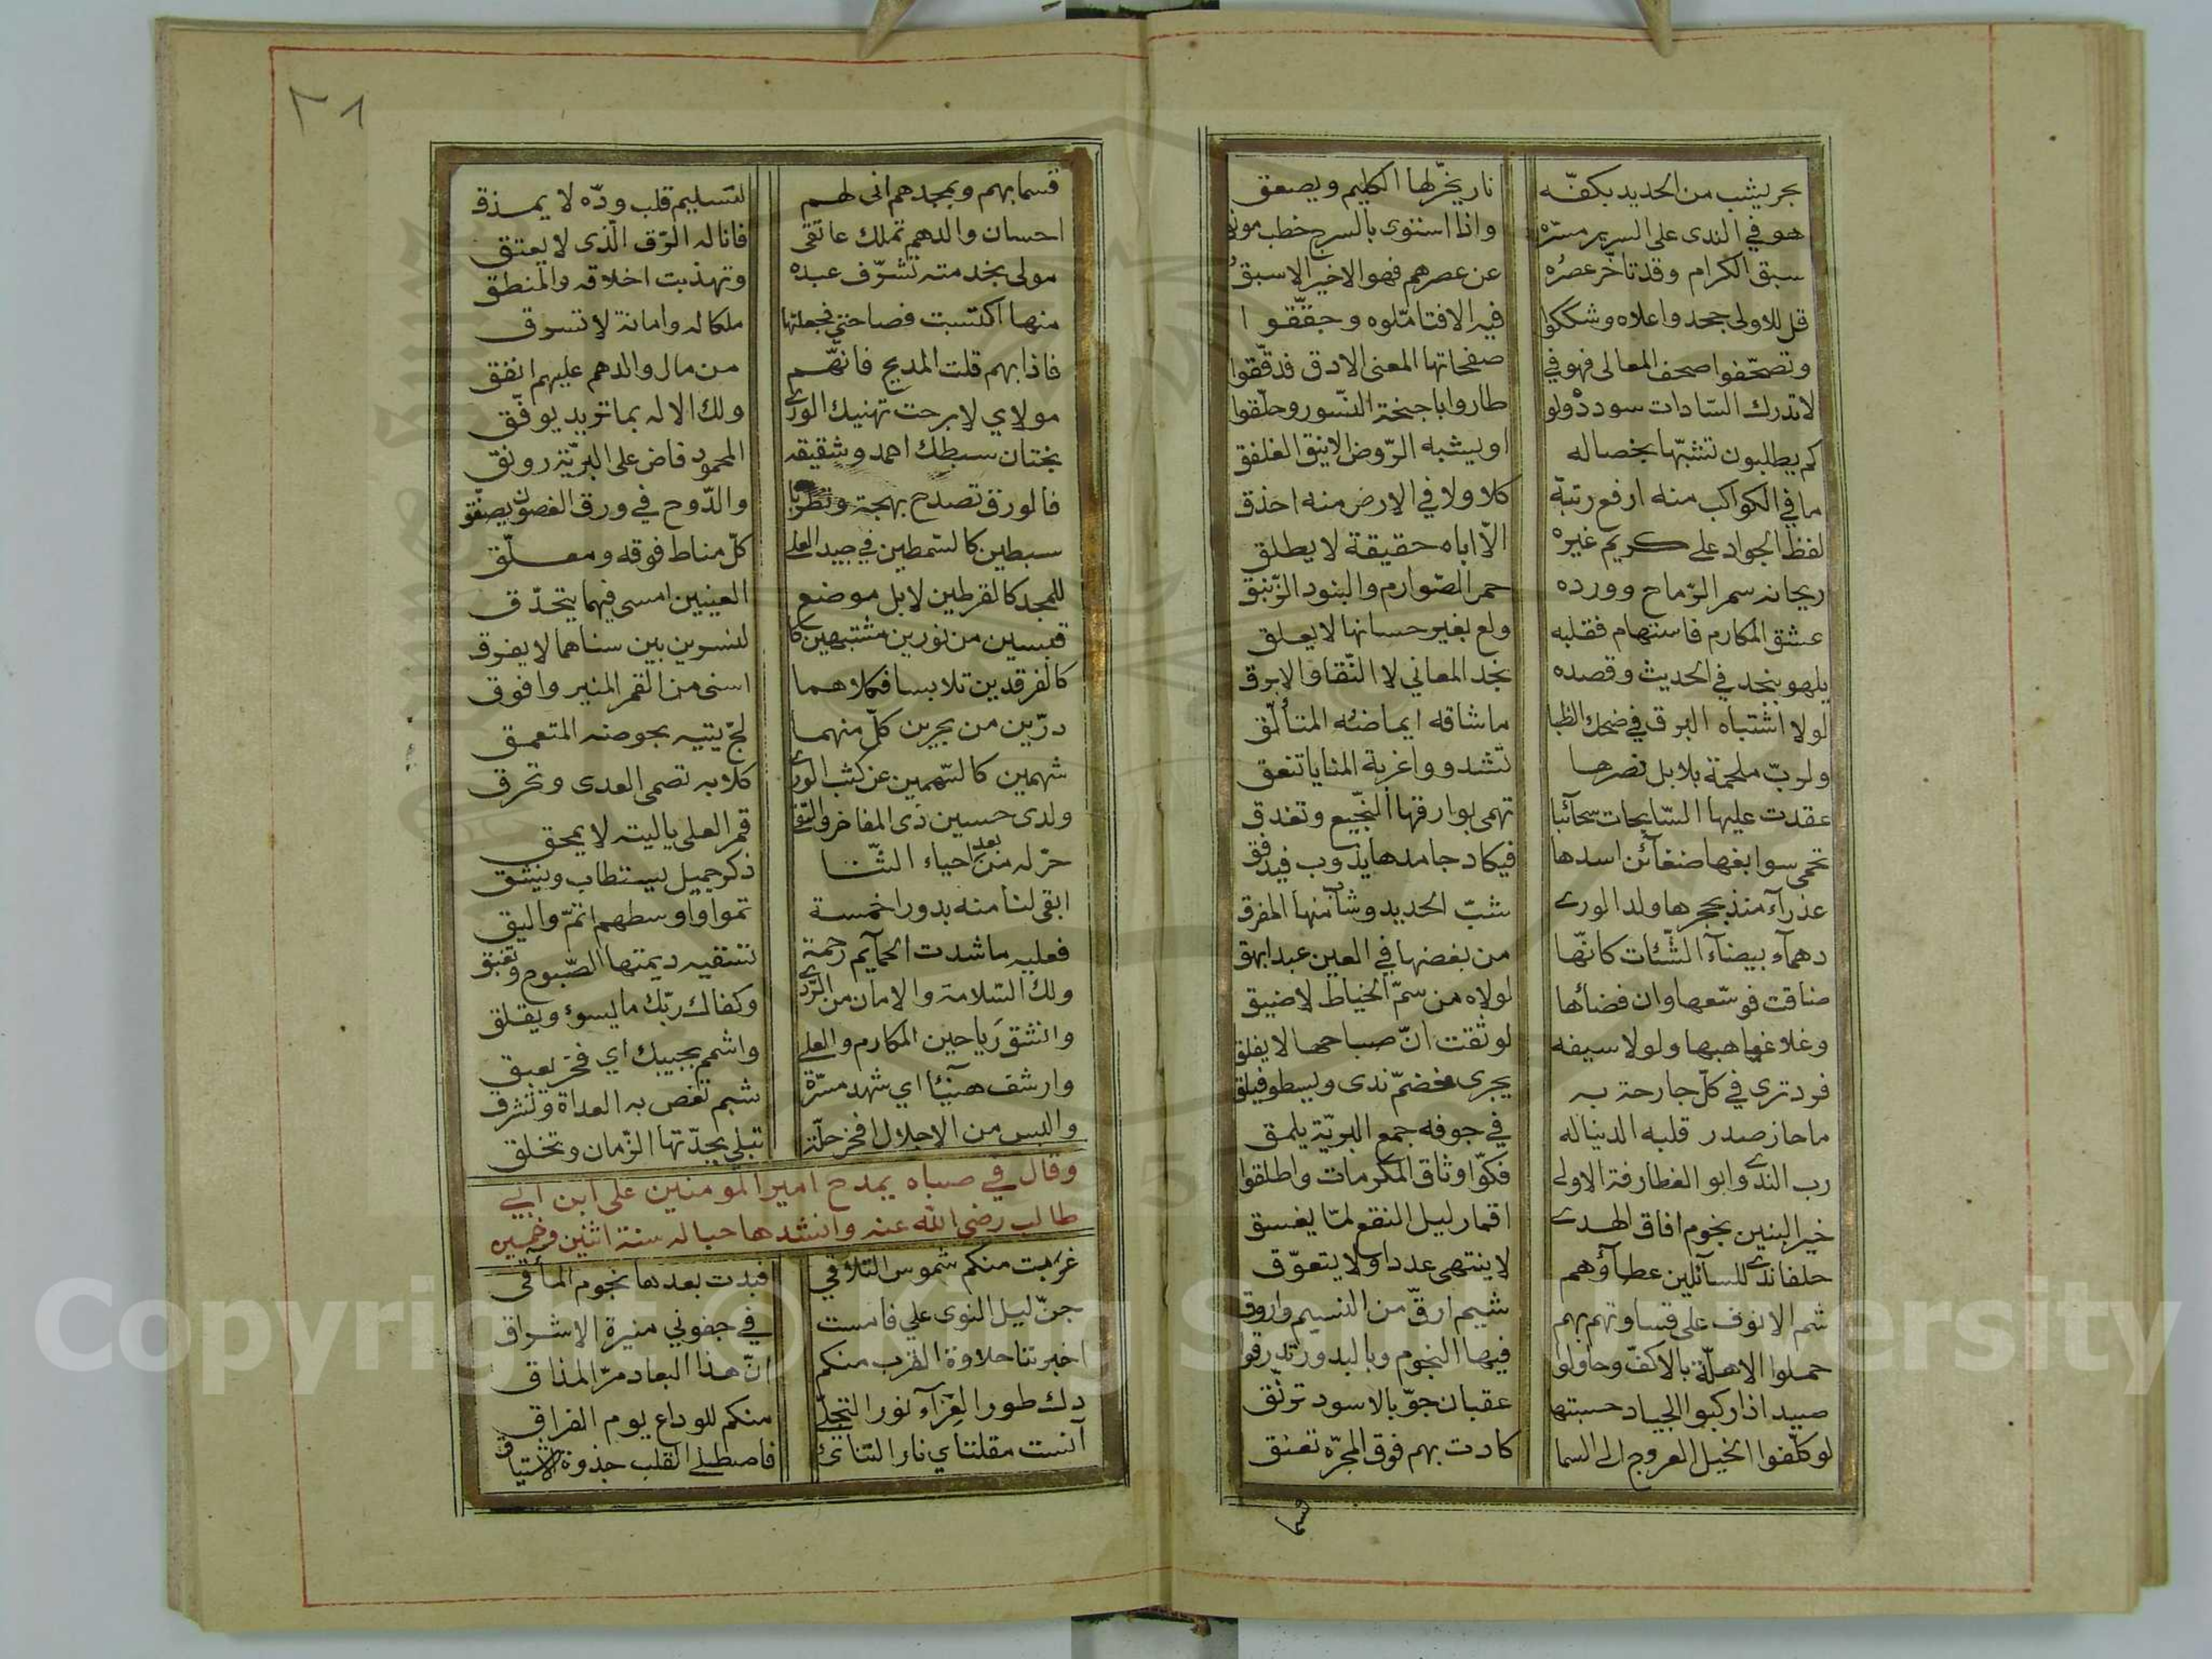 بحر يشب من الحديد بكفّه نار يخرّ لها الكليم ويصعق
هو في الندى على السرير مسرّة واذا استوى بالسرج خطب موبق
سبق الكرام وقد تاخّر عصره عن عصرهم فهو الاخير الاسبق
قل للاولى جحدوا علاه وشككوا فيه الافتامّلوه وحقّقوا
وتصحّفوا صحف المعالى فهو في صفحاتها المعنى الادق فدقّقوا
لا تدرك السّادات سودده ولو طاروا باجنحة النّسور وحلّقوا
كم يطلبون تشبّها بخصاله او يشبه الرّوض الانيق الغلفق
ما في الكواكب منه ارفع رتبة كلا ولا في الارض منه احذق
لفظ الجواد على كريم غيره الّا اباه حقيقة لا يطلق
ريحانه سمر الرّماح وورده حمر الصّوارم والبنود الزّنبق
عشق المكارم فاستهام فقلبه ولع بغير حسانها لا يعلق
يلهو بنجد في الحديث وقصده نجد المعاني لا النّقا والابرق
لولا اشتباه البرق في ضحك الظبا ما شاقه ايماضه المتألّق
ولربّ ملحمة بلابل نصرها تشدو واغربة المنايا تنعق
عقدت عليها السّابحات سحآئبا تهمى بوارقها النّجيع وتغدق
تحمى سوابغها ضغآئن اسدها فيكاد جامدها يذوب فيدفق
عذرآء منذ بحجرها ولد الورى شبّ الحديد وشاب منها المفرق
دهمآء بيضآء الشّئات كانّها من بغضها في العين عبد ابهق
ضاقت فوسّعها وان فضائها لولاه من سمّ الخياط لاضيق
وعلا غياهبها ولولا سيفه لوثقت انّ صباحها لا يفلق
فرد ترى في كلّ جارحة به يجرى خضمّ ندى ويسطو فيلق
ما حاز صدر قلبه الدنيا له في جوفه جمع البريّة يلمق
رب الندى وابو الغطارفة الاولى فكّوا وثاق المكرمات واطلقوا
خير البنين نجوم افاق الهدى اقمار ليل النقع لمّا يغسق
حلفا ندى للسآئلين عطآؤهم لا ينتهى عددا ولا يتعوّق
شم الانوف على قساوتهم بهم شيم ارقّ من النسيم واروق
حملوا الاهلّة بالاكفّ وحاولوا فيها النجوم وبالبدور تدرقوا
صيد اذا ركبوا الجياد حسبتها عقبان جوّ بالاسود ترنّق
لو كلّفوا الخيل العروج الى السما كادت بهم فوق المجرّه تعنق
قسما
٣٨
قسما بهم وبمجدهم انى لهم لتسليم قلب ودّه لا يمذق
احسان والدهم تملك عاتقى فانا له الرّق الّذى لا يعتق
مولى بخدمته تشرّف عبده وتهذبت اخلاقه والمنطق
منها اكتسبت فصاحتي فجعلتها ملكا له وامانة لا تسرق
فاذا بهم قلت المديح فانّهم من مال والدهم عليهم انفق
مولاي لا برحت تهنيك الورى ولك الاله بما تريد يوفّق
بختان سبطك احمد وشقيقه المحمود فاض على البريّة رونق
فالورق تصدح بهجة وتطربا والدّوح في ورق الغصون يصفّق
سبطين كالسّمطين في جيد العلى كلّ مناط فوقه ومعلّق
للمجد كالقرطين لا بل موضع العينين امسى فيهما يتحدّق
قبسين من نورين مشتبهين كا لنسرين بين سناهما لا يفرق
كالفرقدين تلابسا فكلاهما اسنى من القمر المنير وافوق
درّين من بحرين كلّ منهما لجّ يتيه بحوضه المتعمق
شهمين كالسّهمين عن كثب الورى كلا به تصمى العدى وتخرق
ولدى حسين ذى المفاخر والتّقى قمر العلى يا ليته لا يمحق
حرّ له من بعد احياء الثّنا ذكر جميل يستطاب وينشق
ابقى لنا منه بدورا خمسة تموا واوسطهم اتمّ واليق
فعليه ما شدت الحمآيم رحمة تسقيه ديمتها الصّبوح وتغبق
ولك السّلامة والامان من الرّدى وكفاك ربّك ما يسوء ويقلق
وانشق رياحين المكارم والعلى واشمم بجيبك اي فخر يعبق
وارشف هنيئا اي شهد مسرّة شبم تغص به العداة وتشرق
والبس من الاجلال افخر حلّة تبلى بجدّتها الزّمان وتخلق
وقال في صباه يمدح امير المومنين على ابن ابي
طالب رضي الله عنه وانشدها حباله سنة اثنين وخمسين
غربت منكم شموس التلاقي فبدت بعدها نجوم المآقي
جنّ ليل النوى علي فامست في جفوني منيرة الاشراق
اخبرتنا حلاوة القرب منكم انّ هذا البعاد مرّ المذاق
دك طور العزآء نور التجلّي منكم للوداع يوم الفراق
آنست مقلتاي نار التنائي فاصطلى القلب جذوة الاشتياق
Copyright © King Saud University